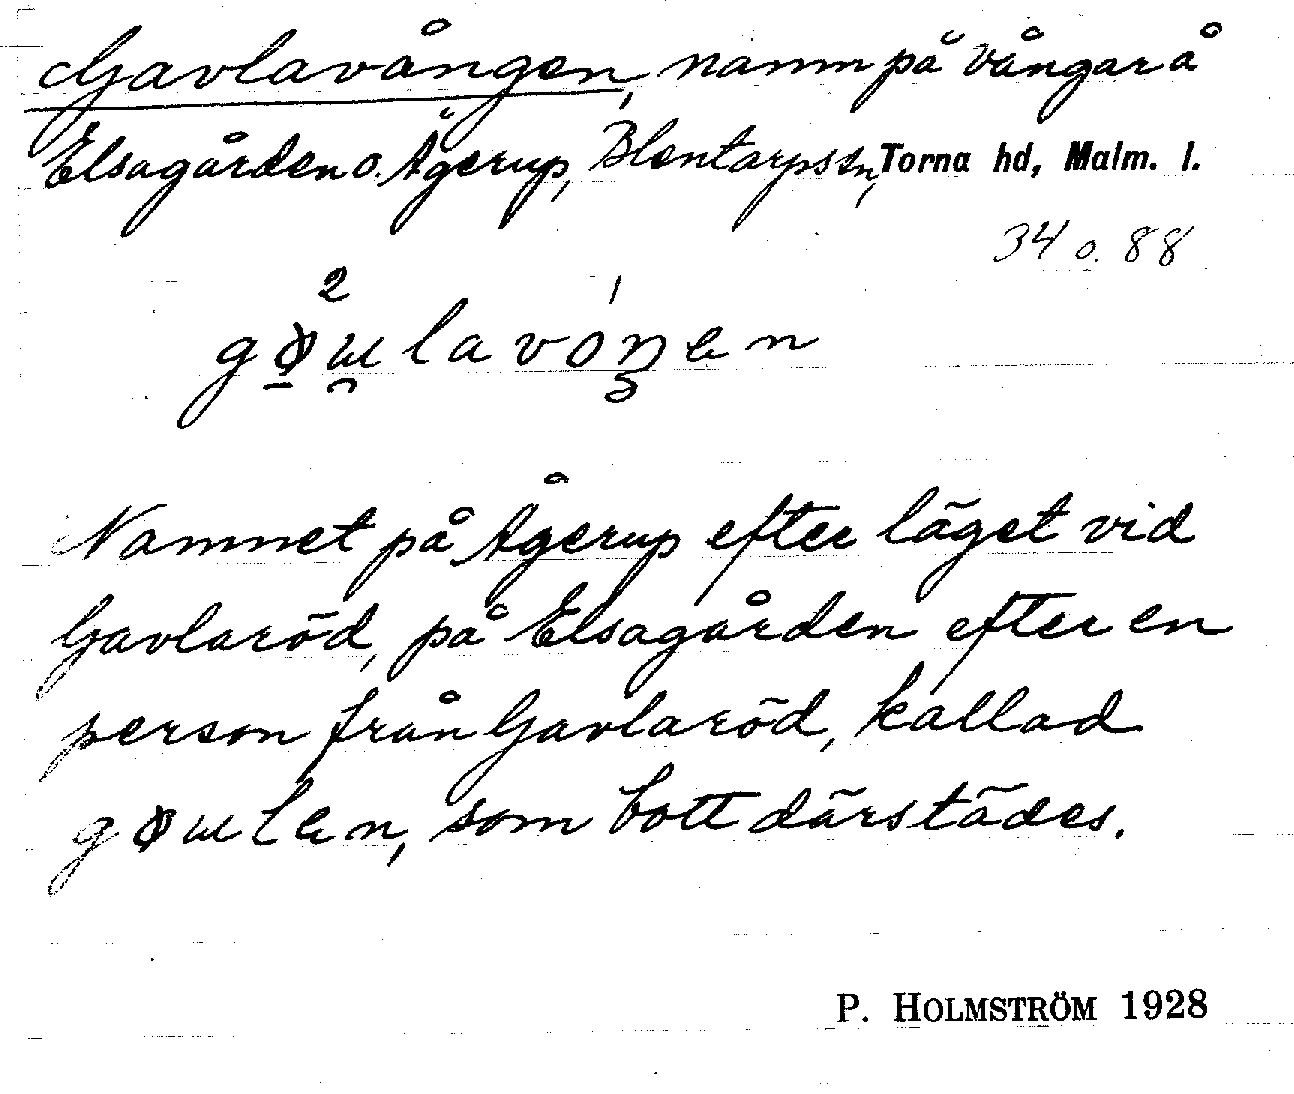 Gavlavången, namn på vångar å
Elsagården o. Ågerup, Blentarps sn, Torna hd, Malm. l.
34 o. 88
Namnet på Ågerup efter läget vid
Gavlaröd, på Elsagården efter en
person från Gavlaröd, kallad
som bott därstädes.
P. HOLMSTRÖM 1928